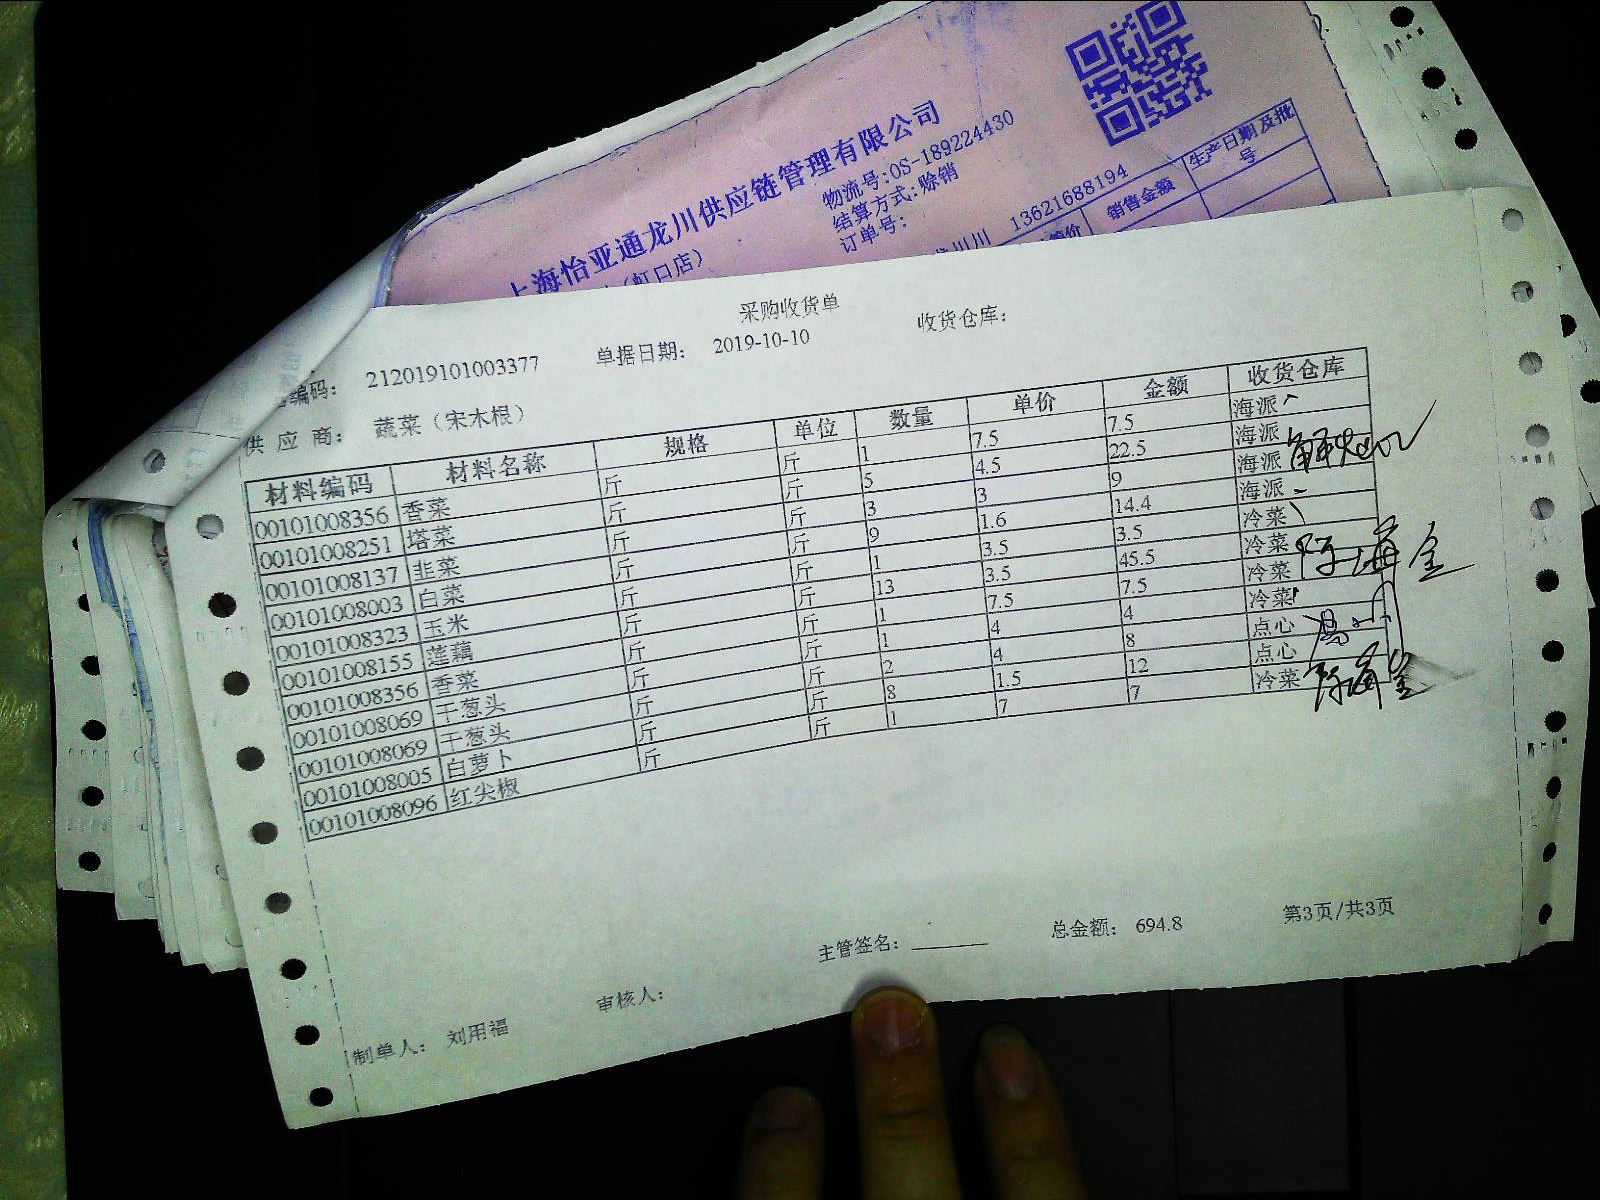 上海怡亚通龙川供应链管理有限公司
(虹口店)
物流号:OS-189224430
结算方式:赊销
订单号:
13621688194
销售金额
生产日期及批号
采购收货单
编码: 212019101003377 单据日期: 2019-10-10 收货仓库:
供应商: 蔬菜（宋木根）
材料编码 材料名称 规格 单位 数量 单价 金额 收货仓库
00101008356 香菜 斤 斤 1 7.5 7.5 海派
00101008251 塔菜 斤 斤 5 4.5 22.5 海派
00101008137 韭菜 斤 斤 3 3 9 海派
00101008003 白菜 斤 斤 9 1.6 14.4 海派
00101008323 玉米 斤 斤 1 3.5 3.5 冷菜
00101008155 莲藕 斤 斤 13 3.5 45.5 冷菜
00101008356 香菜 斤 斤 1 7.5 7.5 冷菜
00101008069 干葱头 斤 斤 1 4 4 冷菜
00101008069 干葱头 斤 斤 2 4 8 点心
00101008005 白萝卜 斤 斤 8 1.5 12 点心
00101008096 红尖椒 斤 斤 1 7 7 冷菜
陈海金
陈海金
主管签名: 总金额: 694.8 第3页/共3页
制单人: 刘用福 审核人: